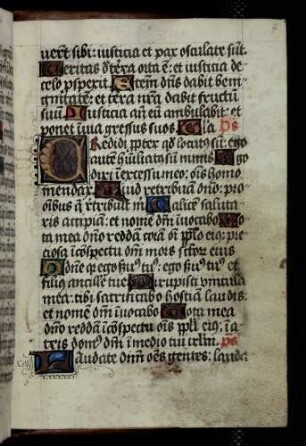 uerūt sibi: iusticia et pax osculate sūt.
Veritas de terra orta ē: et iusticia de
celo prspexit. Etem dñs dabit beni
gnitatē: et terra nr̄a dabit fructū
suū. Iusticia añ eū ambulabit: et
ponet ī uia gressus suos. Gl̄a. Ps
Credidi ppter qd̄ locutꝰ sū: ego
autē hūiliatꝰ sū nimis. Ego
dixi ī excessu meo: oīs homo
mendax. Quid retribuā dño: p
oībus q̄ retribuit m̄. Calicē saluta
ris accipiā: et nomē dñi īuocabo. Vo
ta mea dño reddā corā oī pplo eiꝰ: p̄
ciosa ī cōspectu dñi mors sctor̄ eius
O dñe q̄ ego ẜuꝰ tuꝰ: ego ẜuꝰ tuꝰ et
filiꝰ ancille tue. Dirupisti vincula
mea: tibi sacrificabo hostiā laudis:
et nomē dñi īuocabo. Vota mea
dño reddā ī cōspectu oīs ppli eiꝰ: ī a
triis domꝰ dñi ī medio tui ierl̄m. Ps
Laudate dñm oēs gentes: lauda